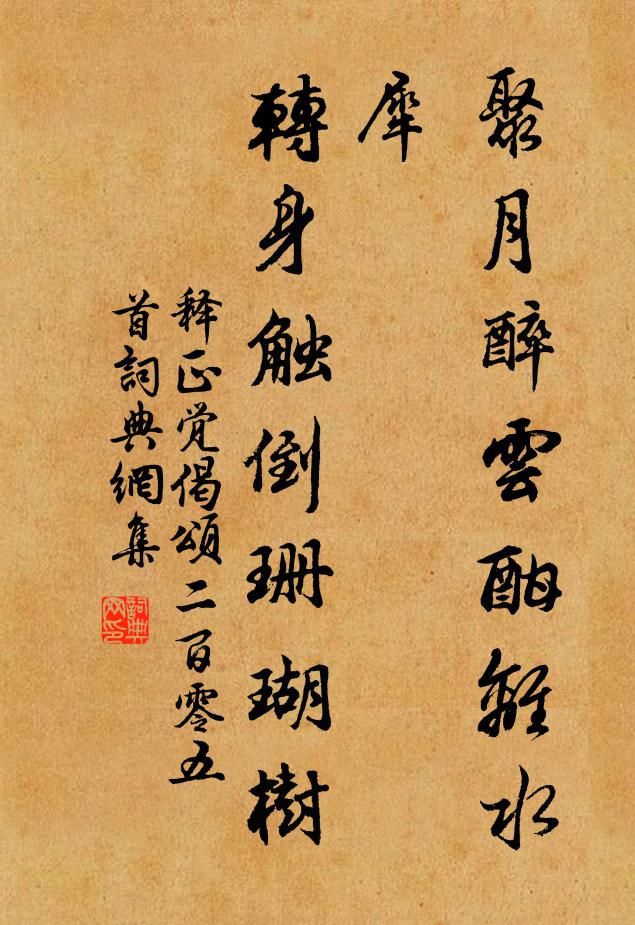 聚月醉雲酣離水
犀
轉身触倒珊瑚樹
释正觉偈頌二百零五
首詞典網集
詞典
网印